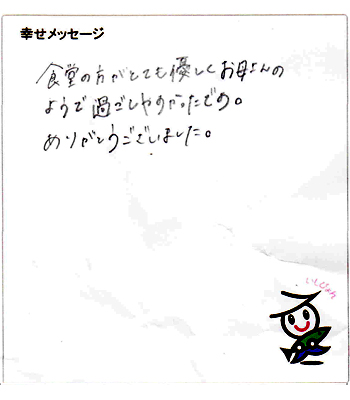 幸せメッセージ
食堂の方がとても優しくお母さんの
ようで過ごしやすかったです。
ありがとうございました。
いしぴょん